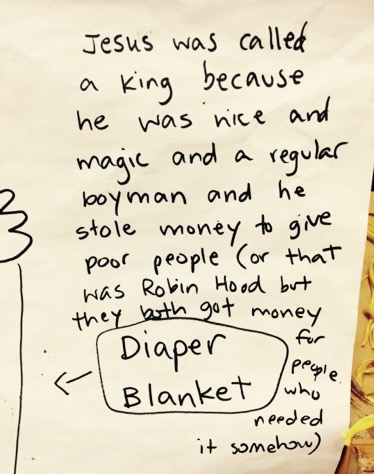 Jesus was called
a king because
he was nice and
magic and a regular
boyman and he
stole money to give
poor people (or that
was Robin Hood but
they both got money
for
people
who
needed
it somehow)
Diaper
Blanket